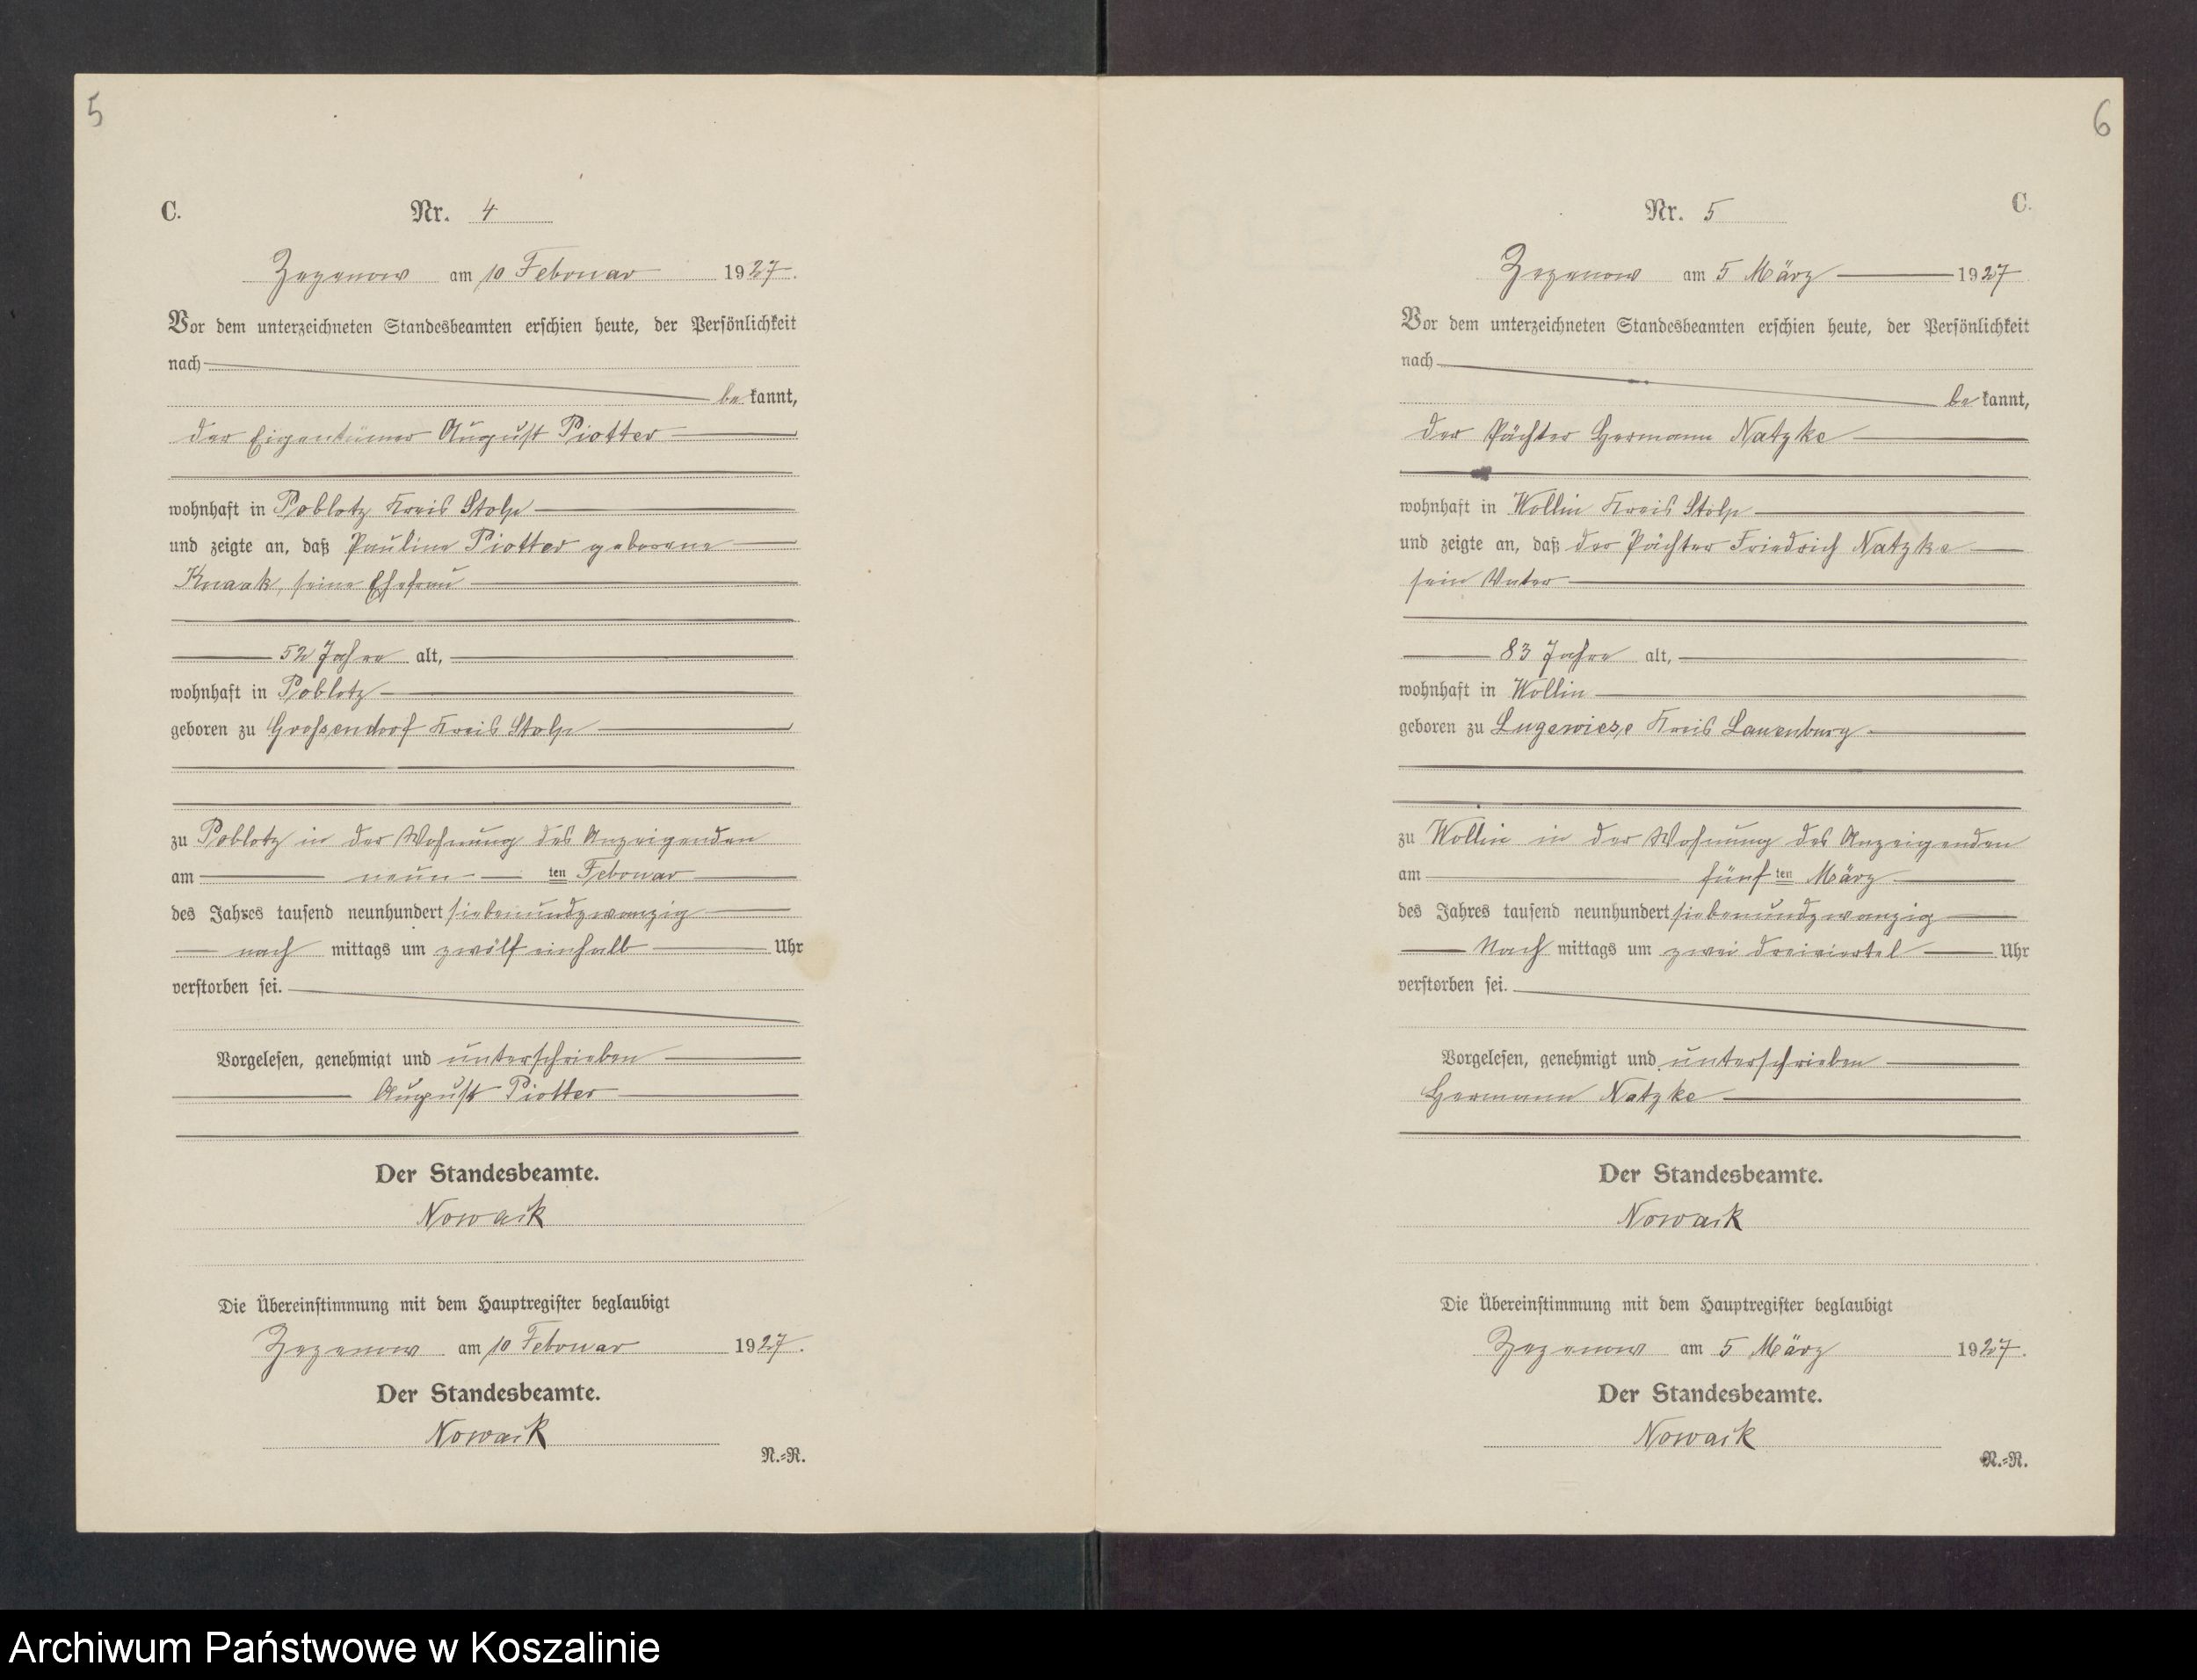 5
C.
Nr. 4
Zezenow am 10 Februar 1927.
Vor dem unterzeichneten Standesbeamten erschien heute, der Persönlichkeit
nach
be kannt,
der Eigentümer August Piotter
wohnhaft in Poblotz Kreis Stolp
und zeigte an, daß Pauline Piotter geborene
Knaak, seine Ehefrau
52 Jahre alt,
wohnhaft in Poblotz
geboren zu Grossendorf Kreis Stolp
zu Poblotz in der Wohnung des Anzeigenden
am neun ten Februar
des Jahres tausend neunhundert siebenundzwanzig
nach mittags um zwölf einhalb Uhr
verstorben sei.
Vorgelesen, genehmigt und unterschrieben
August Piotter
Der Standesbeamte.
Nowack
Die Übereinstimmung mit dem Hauptregister beglaubigt
Zezenow am 10 Februar 1927.
Der Standesbeamte.
Nowack
N.=R.
6
C.
Nr. 5
Zezenow am 5 März 1927
Vor dem unterzeichneten Standesbeamten erschien heute, der Persönlichkeit
nach
be kannt,
der Pächter Hermann Natzke
wohnhaft in Wollin Kreis Stolp
und zeigte an, daß der Pächter Friedrich Natzke
sein Vater
83 Jahre alt,
wohnhaft in Wollin
geboren zu Lugewiese Kreis Lauenburg
zu Wollin in der Wohnung des Anzeigenden
am fünf ten März
des Jahres tausend neunhundert siebenundzwanzig
Nach mittags um zwei dreiviertel Uhr
verstorben sei.
Vorgelesen, genehmigt und unterschrieben
Hermann Natzke
Der Standesbeamte.
Nowack
Die Übereinstimmung mit dem Hauptregister beglaubigt
Zezenow am 5 März 1927.
Der Standesbeamte.
Nowack
N.=R.
Archiwum Państwowe w Koszalinie